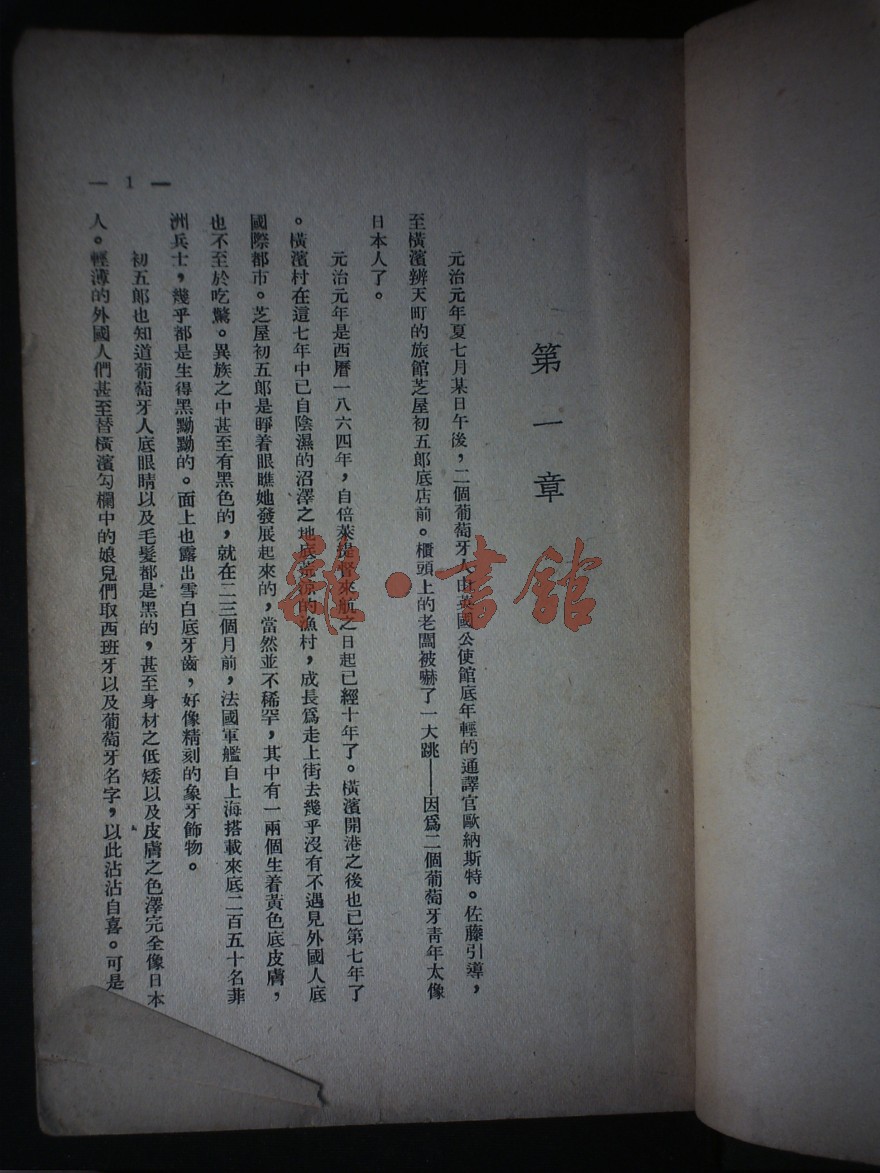 第一章
元治元年夏七月某日午後，二個葡萄牙人由英國公使館底年輕的通譯官歐納斯特。佐藤引導，
至橫濱辨天町的旅館芝屋初五郎底店前。櫃頭上的老闆被嚇了一大跳——因爲二個葡萄牙靑年太像
日本人了。
元治元年是西曆一八六四年，自倍萊提督來航之日起已經十年了。橫濱開港之後也已第七年了
。橫濱村在這七年中已自陰濕的沼澤之地底荒凉的漁村，成長爲走上街去幾乎沒有不遇見外國人底
國際都市。芝屋初五郎是睜着眼瞧她發展起來的，當然並不稀罕，其中有一兩個生着黃色底皮膚，
也不至於吃驚。異族之中甚至有黑色的，就在二三個月前，法國軍艦自上海搭載來底二百五十名菲
洲兵士，幾乎都是生得黑黝黝的。面上也露出雪白底牙齒，好像精刻的象牙飾物。
初五郎也知道葡萄牙人底眼睛以及毛髮都是黑的，甚至身材之低矮以及皮膚之色澤完全像日本
人。輕薄的外國人們甚至替橫濱勾欄中的娘兒們取西班牙以及葡萄牙名字，以此沾沾自喜。可是
— 1 —
雜·書館